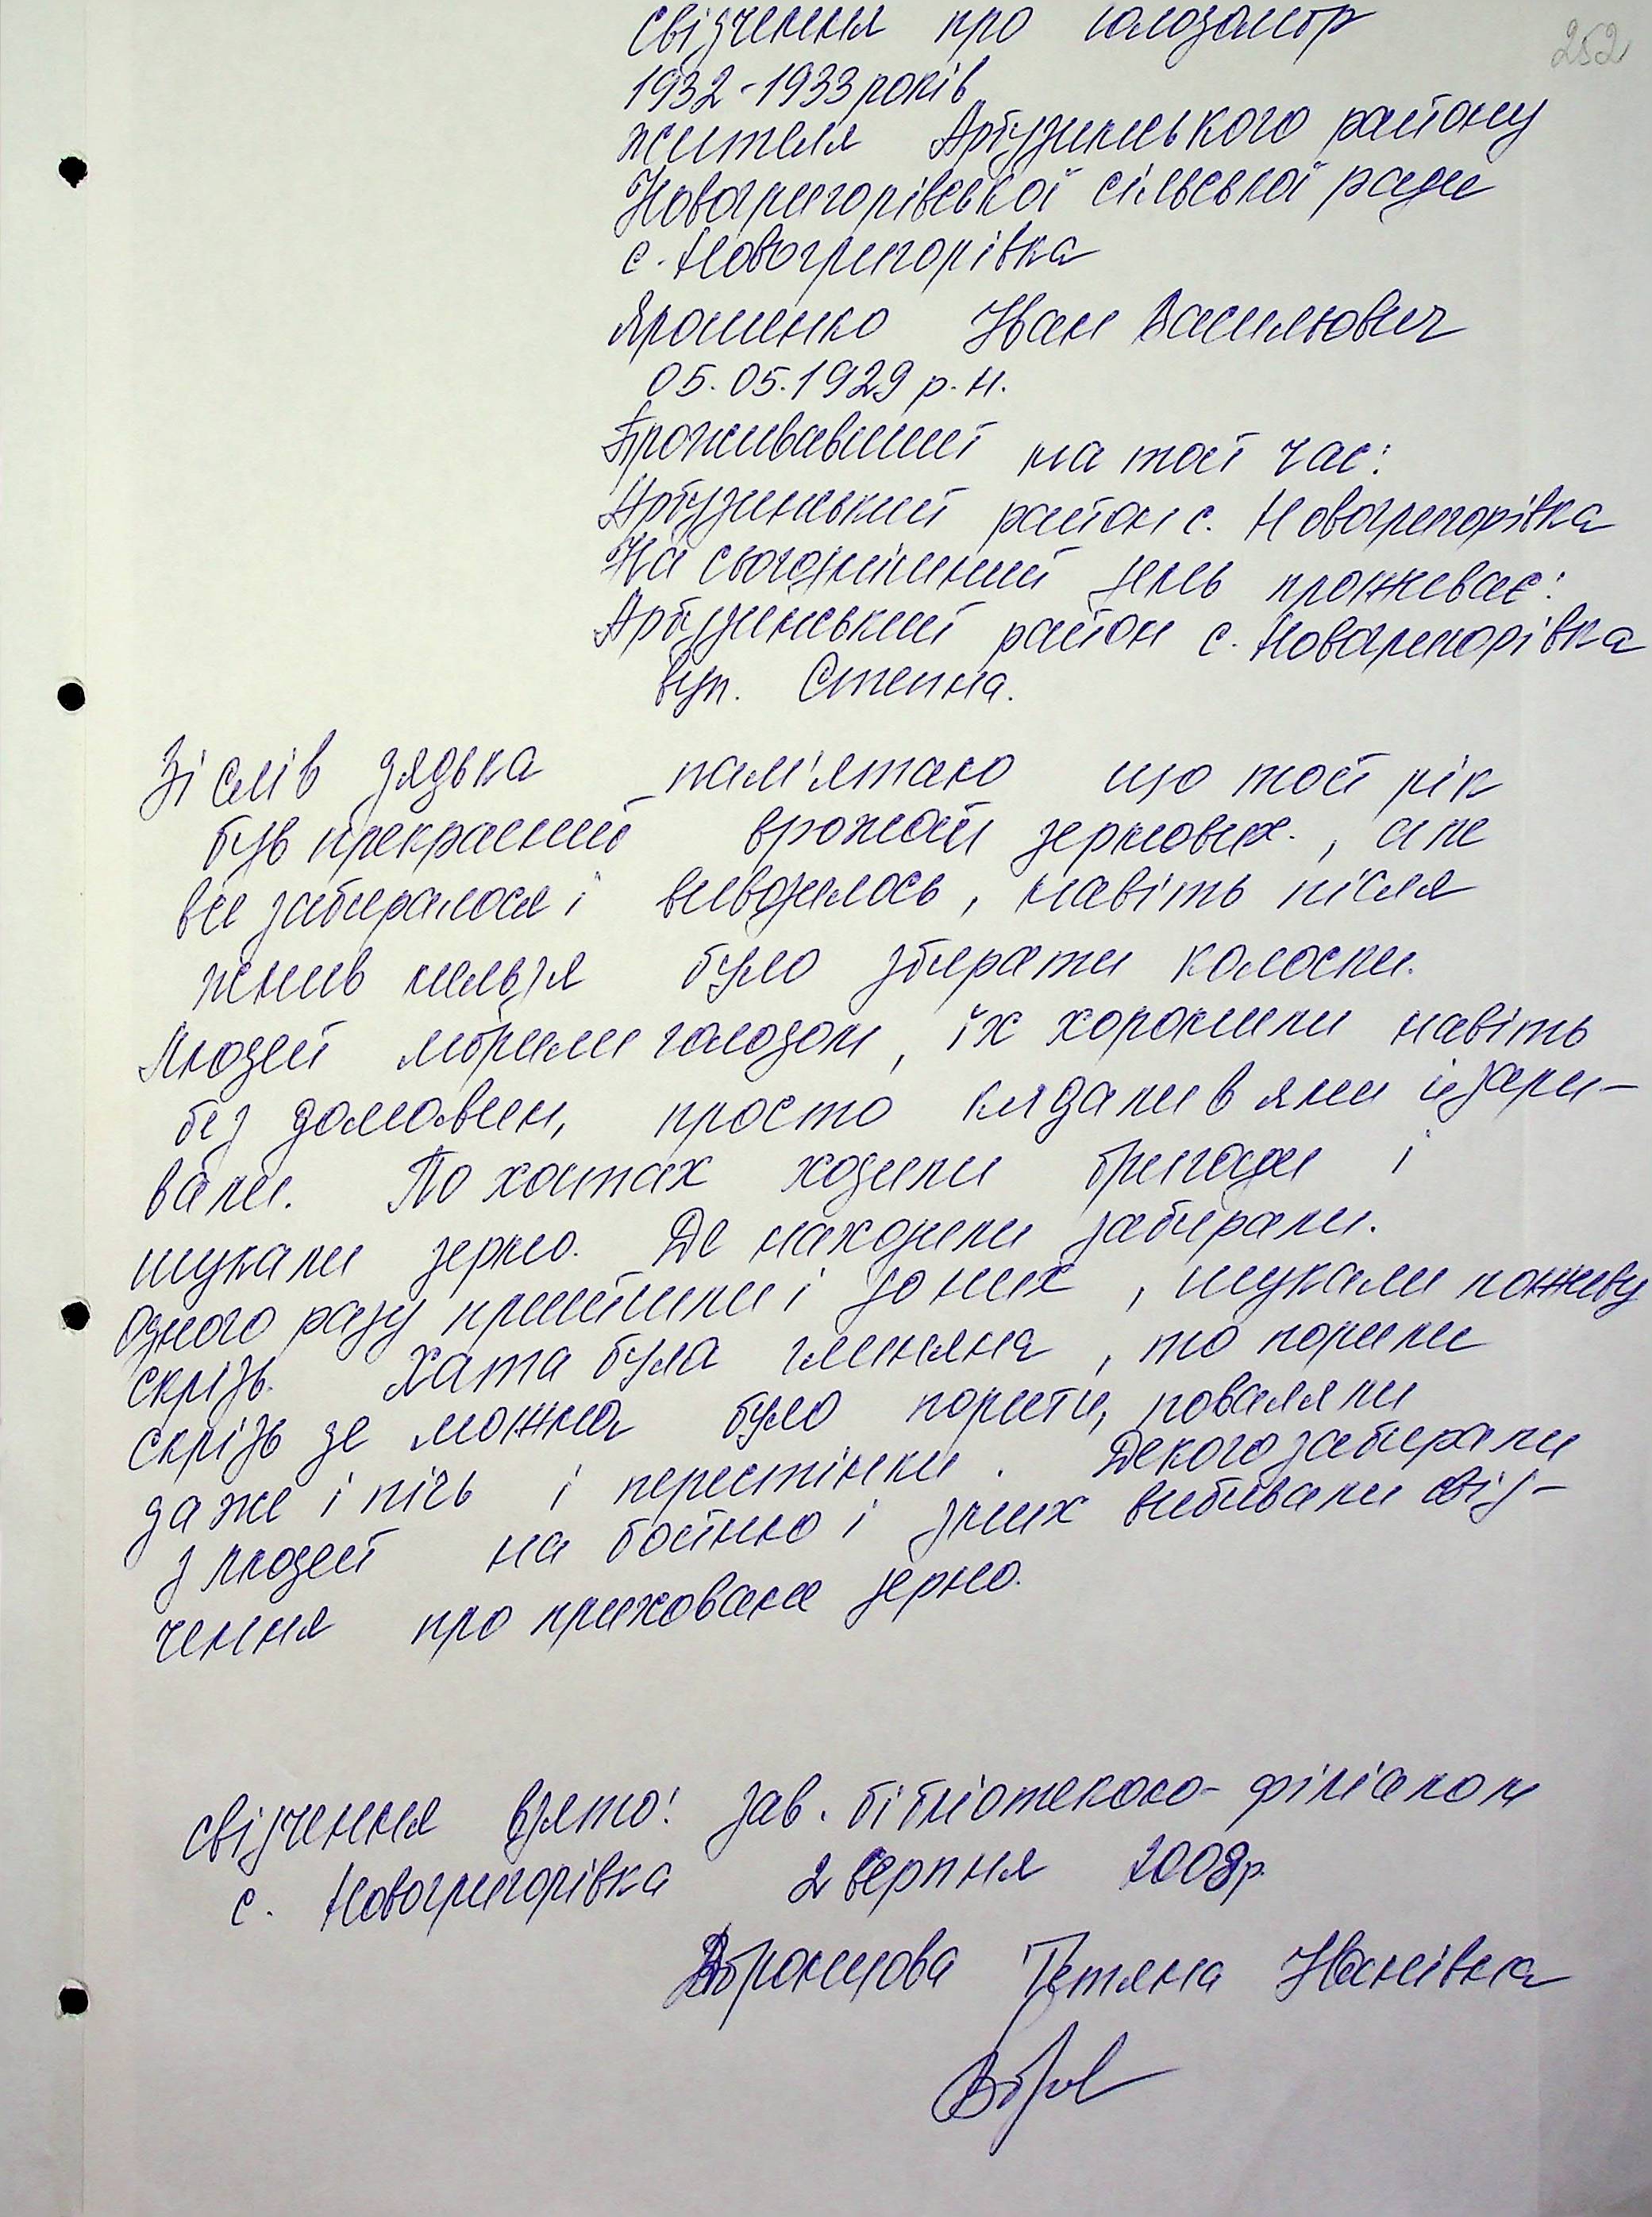 252
свідчення про голодомор
1932-1933 років
жителя Арбузинського району
Новогригорівської сільської ради
с. Новогригорівка
Ярошенко Іван Васильович
05.05.1929 р.н.
Проживавший на той час:
Арбузинський район с. Новогригорівка
На сьогоднішній день проживає:
Арбузинський район с. Новогригорівка
вул. Степна.
Зі слів дядька пам'ятаю що той рік
був прекрасний врожай зернових., але
все забиралося і вивозилось, навіть після
жнив нельзя було збирати колоски.
Людей морили голодом, їх хоронили навіть
без домовин, просто кидали в ями й зари-
вали. По хатах ходили бригади і
шукали зерно. Де находили забирали.
Одного разу прийшли і до них, шукали поживу
скрізь. Хата була глиняна, то порили
скрізь де можна було порити, поваляли
даже і піч і перестінки. Декого забирали
з людей на бойню і з них вибивали свід-
чення про приховане зерно.
свідчення взято: зав. бібліотекою-філіалом
с. Новогригорівка 2 серпня 2008р.
Тетяна Іванівна